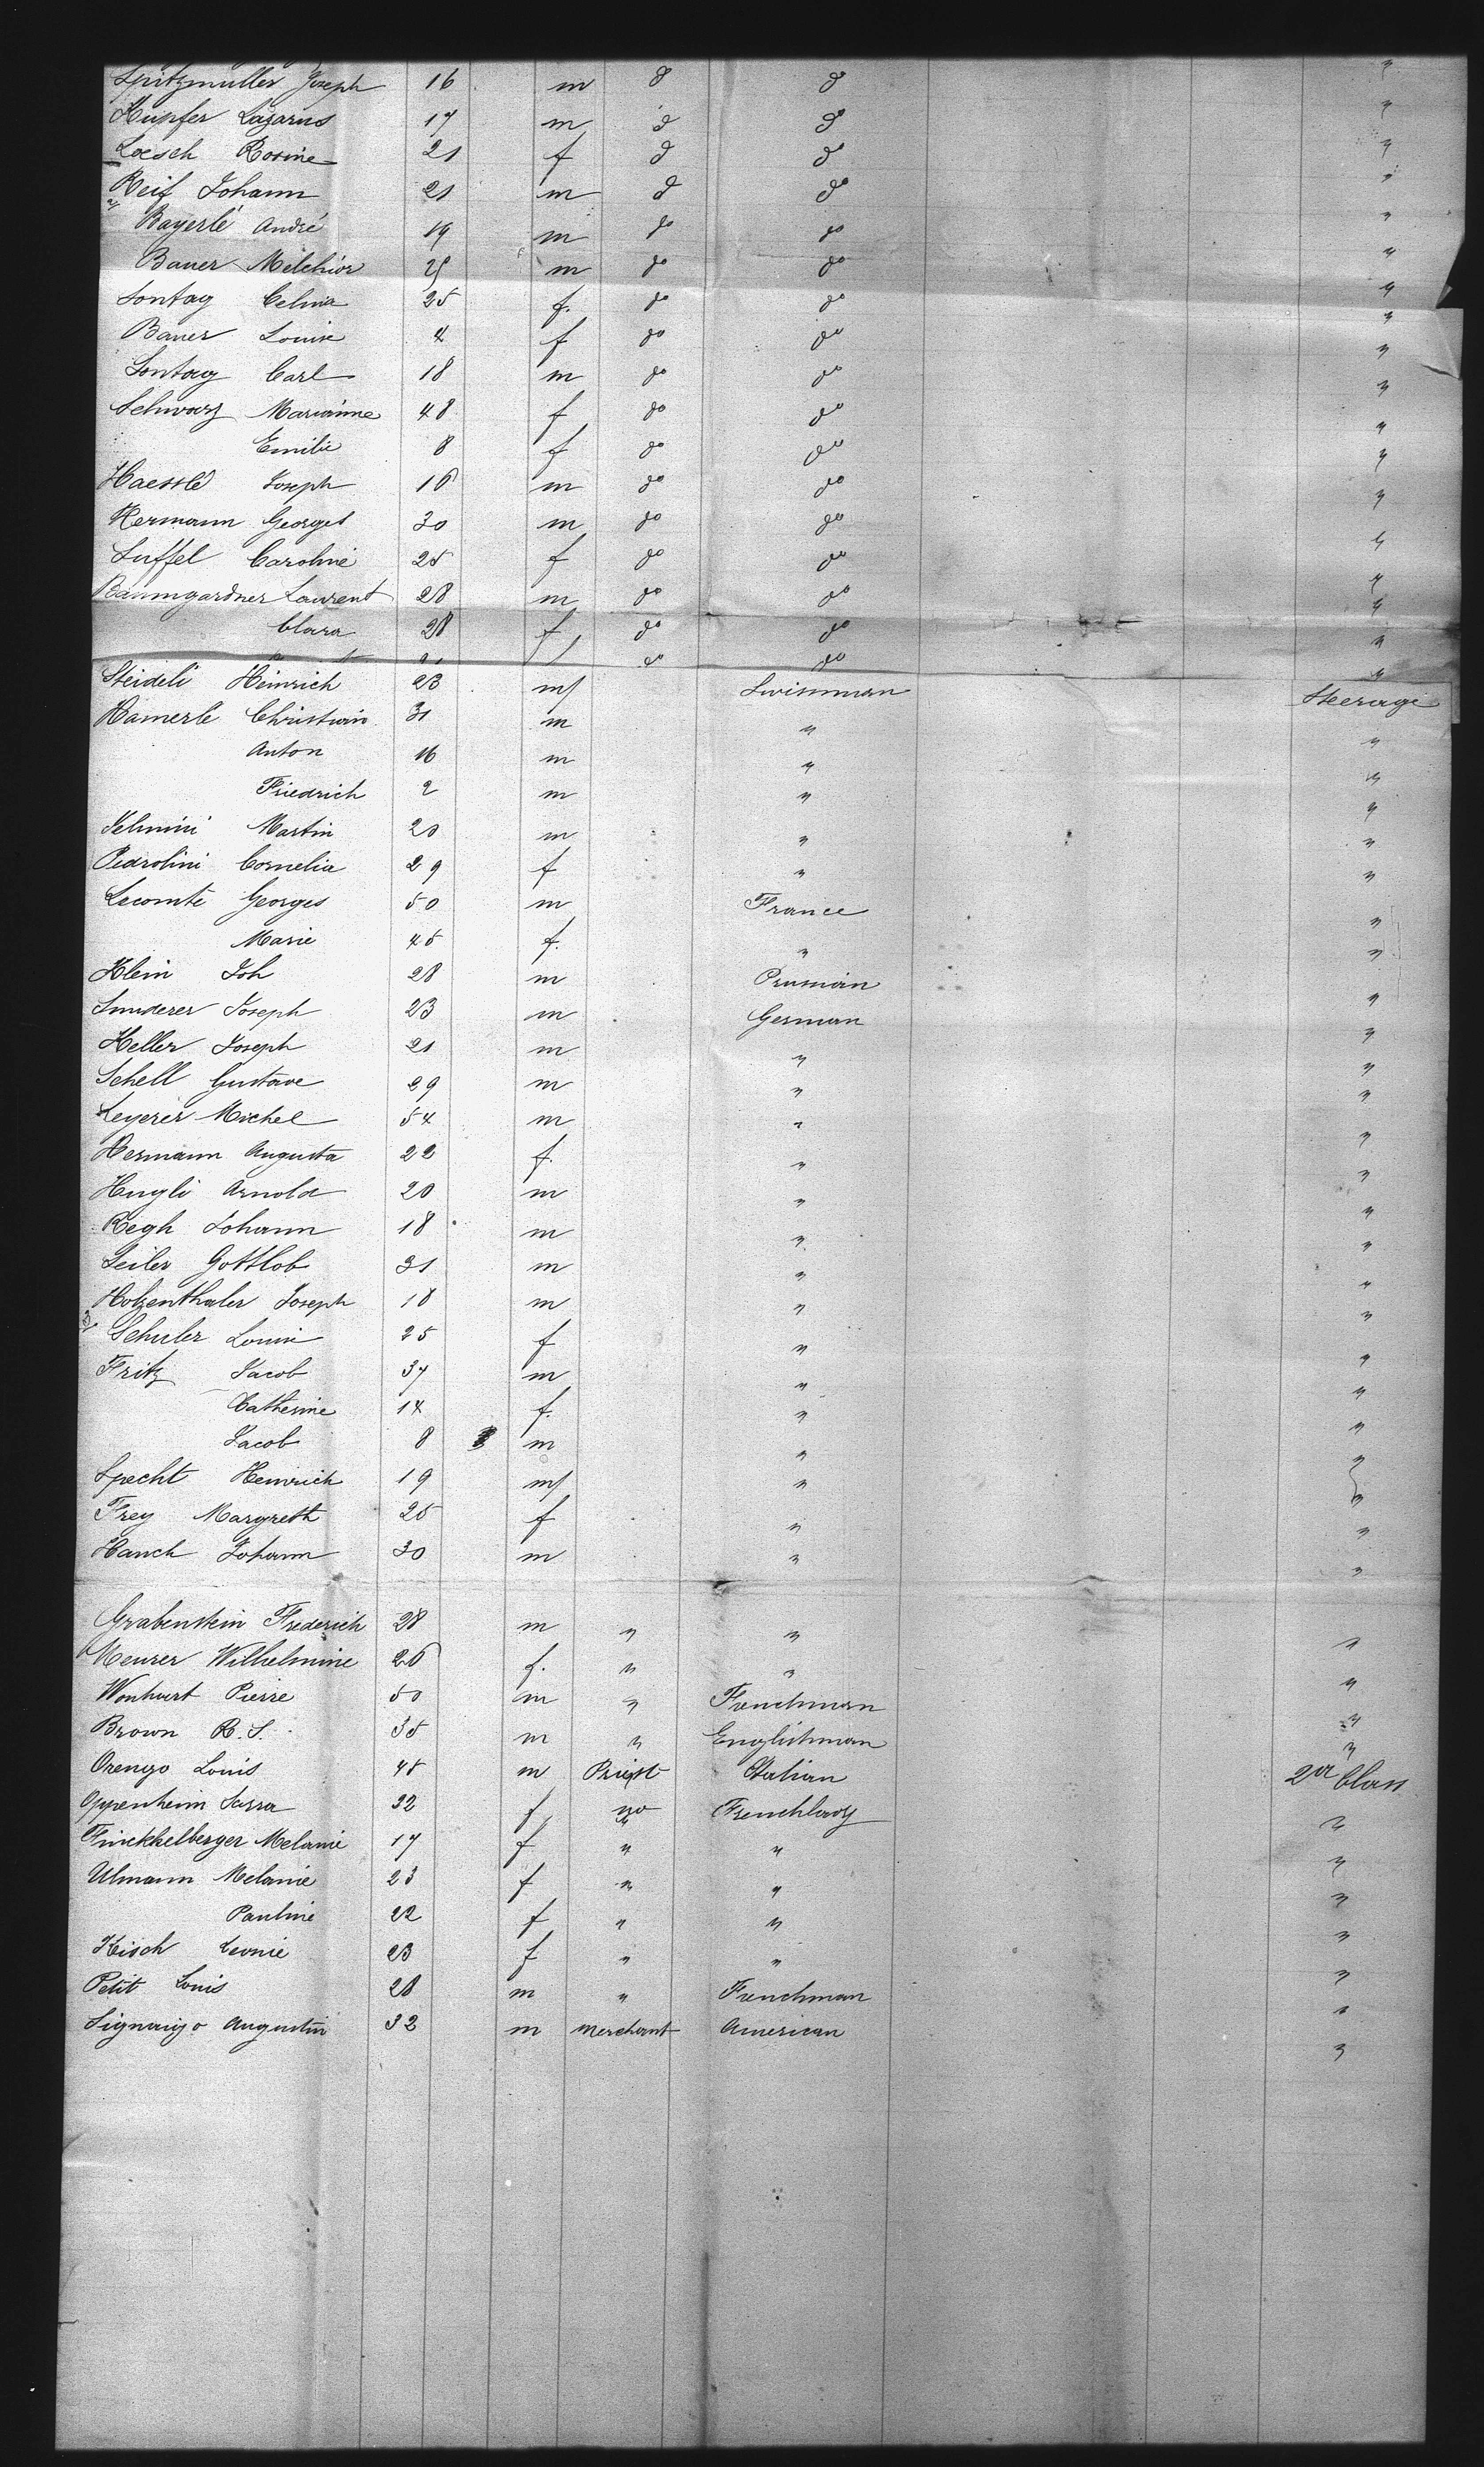 Spitzmuller Joseph 16 m do do "
Kupfer Lazarus 17 m do do "
Loesch Rosine 21 f do do "
Reif Johann 21 m do do "
Bayerlé André 19 m do do "
Bauer Melchior 25 m do do "
Sontag Celina 25 f. do do "
Bauer Louise 4 f do do "
Sontag Carl 18 m do do "
Schwarz Marianne 48 f do do "
Emilie 8 f do do "
Haesslé Joseph 16 m do do "
Hermann Georges 30 m do do "
Suffel Caroline 25 f do do "
Baumgardner Laurent 28 m do do "
Clara 28 f do do "
do do "
Steideli Heinrich 23 m Swissman Steerage
Hamerle Christian 31 m " "
Anton 16 m " "
Friedrich 2 m " "
Martin 20 m " "
Pedrolini Cornelia 29 f " "
Lecomte Georges 50 m France "
Marie 45 f. " "
Klein Joh 28 m Prussian "
Joseph 23 m German "
Heller Joseph 21 m " "
Schell Gustave 29 m " "
Leyerer Michel 54 m " "
Hermann Augusta 22 f. " "
Hugli Arnold 20 m " "
Regh Johann 18 m " "
Seiler Gottlob 31 m " "
Holzenthaler Joseph 18 m " "
Schuler Louise 25 f " "
Fritz Jacob 37 m " "
Catherine 14 f. " "
Jacob 8 m " "
Specht Heinrich 19 m " "
Frey Margreth 25 f " "
Hauch Johann 30 m " "
Grabenstein Frederich 28 m " " "
Meurer Wilhelmine 26 f. " " "
Wonhart Pierre 50 m " Frenchman "
Brown R. S. 35 m " Englishman "
Orengo Louis 48 m Priest Italian 2d Class
Oppenheim Sarra 32 f no Frenchlady "
Finckhelberger Melanie 17 f " " "
Ulmann Melanie 23 f " " "
Pauline 22 f " " "
Kisch Leonie 23 f " " "
Petit Louis 28 m " Frenchman "
Signaigo Augustin 32 m Merchant American "